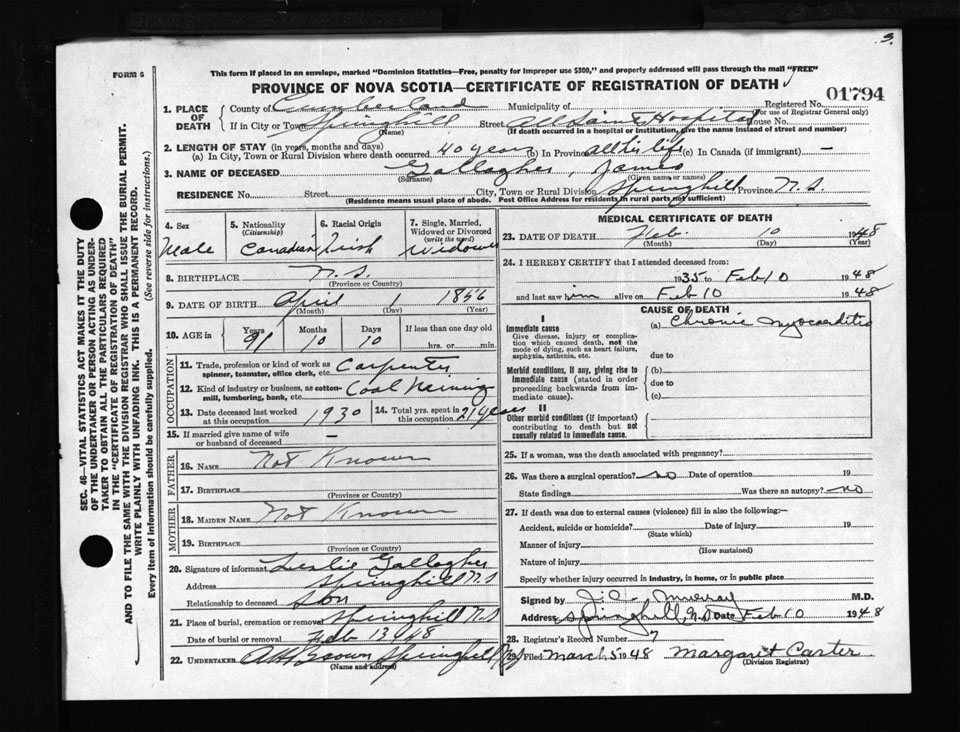 3.
FORM 6
This form if placed in an envelope, marked "Dominion Statistics—Free, penalty for improper use $300," and properly addressed will pass through the mail "FREE"
PROVINCE OF NOVA SCOTIA—CERTIFICATE OF REGISTRATION OF DEATH
01794
1. PLACE OF DEATH County of Cumberland Municipality of Registered No.
(For use of Registrar General only)
If in City or Town Springhill Street All Saints Hospital House No.
(Name) (If death occurred in a hospital or institution, give the name instead of street and number)
2. LENGTH OF STAY (in years, months and days)
(a) In City, Town or Rural Division where death occurred 40 years (b) In Province all his life (c) In Canada (if immigrant) —
3. NAME OF DECEASED Gallagher, James
(Surname) (Given name or names)
RESIDENCE No. Street City, Town or Rural Division Springhill Province N.S.
(Residence means usual place of abode. Post Office Address for residents in rural parts not sufficient)
4. Sex Male
5. Nationality (Citizenship) Canadian
6. Racial Origin Irish
7. Single, Married, Widowed or Divorced (write the word) Widower
8. BIRTHPLACE N.S.
(Province or Country)
9. DATE OF BIRTH April 1 1856
(Month) (Day) (Year)
10. AGE in Years 91 Months 10 Days 10 If less than one day old hrs. or min.
OCCUPATION
11. Trade, profession or kind of work as spinner, teamster, office clerk, etc. Carpenter
12. Kind of industry or business, as cotton-mill, lumbering, bank, etc. Coal Mining
13. Date deceased last worked at this occupation 1930
14. Total yrs. spent in this occupation 21 years
15. If married give name of wife or husband of deceased —
FATHER
16. NAME Not Known
17. BIRTHPLACE
(Province or Country)
MOTHER
18. MAIDEN NAME Not Known
19. BIRTHPLACE
(Province or Country)
20. Signature of informant Leslie Gallagher
Address Springhill N.S
Relationship to deceased Son
21. Place of burial, cremation or removal Springhill N.S
Date of burial or removal Feb 13/48
22. UNDERTAKER A H Brown Springhill N.S
(Name and address)
MEDICAL CERTIFICATE OF DEATH
23. DATE OF DEATH Feb. 10 1948
(Month) (Day) (Year)
24. I HEREBY CERTIFY that I attended deceased from:
1935 to Feb 10 1948
and last saw him alive on Feb 10 1948
CAUSE OF DEATH
I
Immediate cause
Give disease, injury or complication which caused death, not the mode of dying, such as heart failure, asphyxia, asthenia, etc.
(a) Chronic Myocarditis
due to
Morbid conditions, if any, giving rise to immediate cause (stated in order proceeding backwards from immediate cause).
(b)
due to
(c)
II
Other morbid conditions (if important) contributing to death but not causally related to immediate cause.
25. If a woman, was the death associated with pregnancy?
26. Was there a surgical operation? no Date of operation 19
State findings Was there an autopsy? no
27. If death was due to external causes (violence) fill in also the following:—
Accident, suicide or homicide? Date of injury 19
(State which)
Manner of injury
(How sustained)
Nature of injury
Specify whether injury occurred in industry, in home, or in public place
Signed by J.A. Murray M.D.
Address Springhill, N.S. Date Feb 10 1948
28. Registrar's Record Number 7
29. Filed March 5 1948 Margaret Carter
(Division Registrar)
SEC. 46—VITAL STATISTICS ACT MAKES IT THE DUTY
OF THE UNDERTAKER OR PERSON ACTING AS UNDER-
TAKER TO OBTAIN ALL THE PARTICULARS REQUIRED
IN THE "CERTIFICATE OF REGISTRATION OF DEATH"
AND TO FILE THE SAME WITH THE DIVISION REGISTRAR WHO SHALL ISSUE THE BURIAL PERMIT.
WRITE PLAINLY WITH UNFADING INK. THIS IS A PERMANENT RECORD.
Every item of information should be carefully supplied. (See reverse side for instructions.)